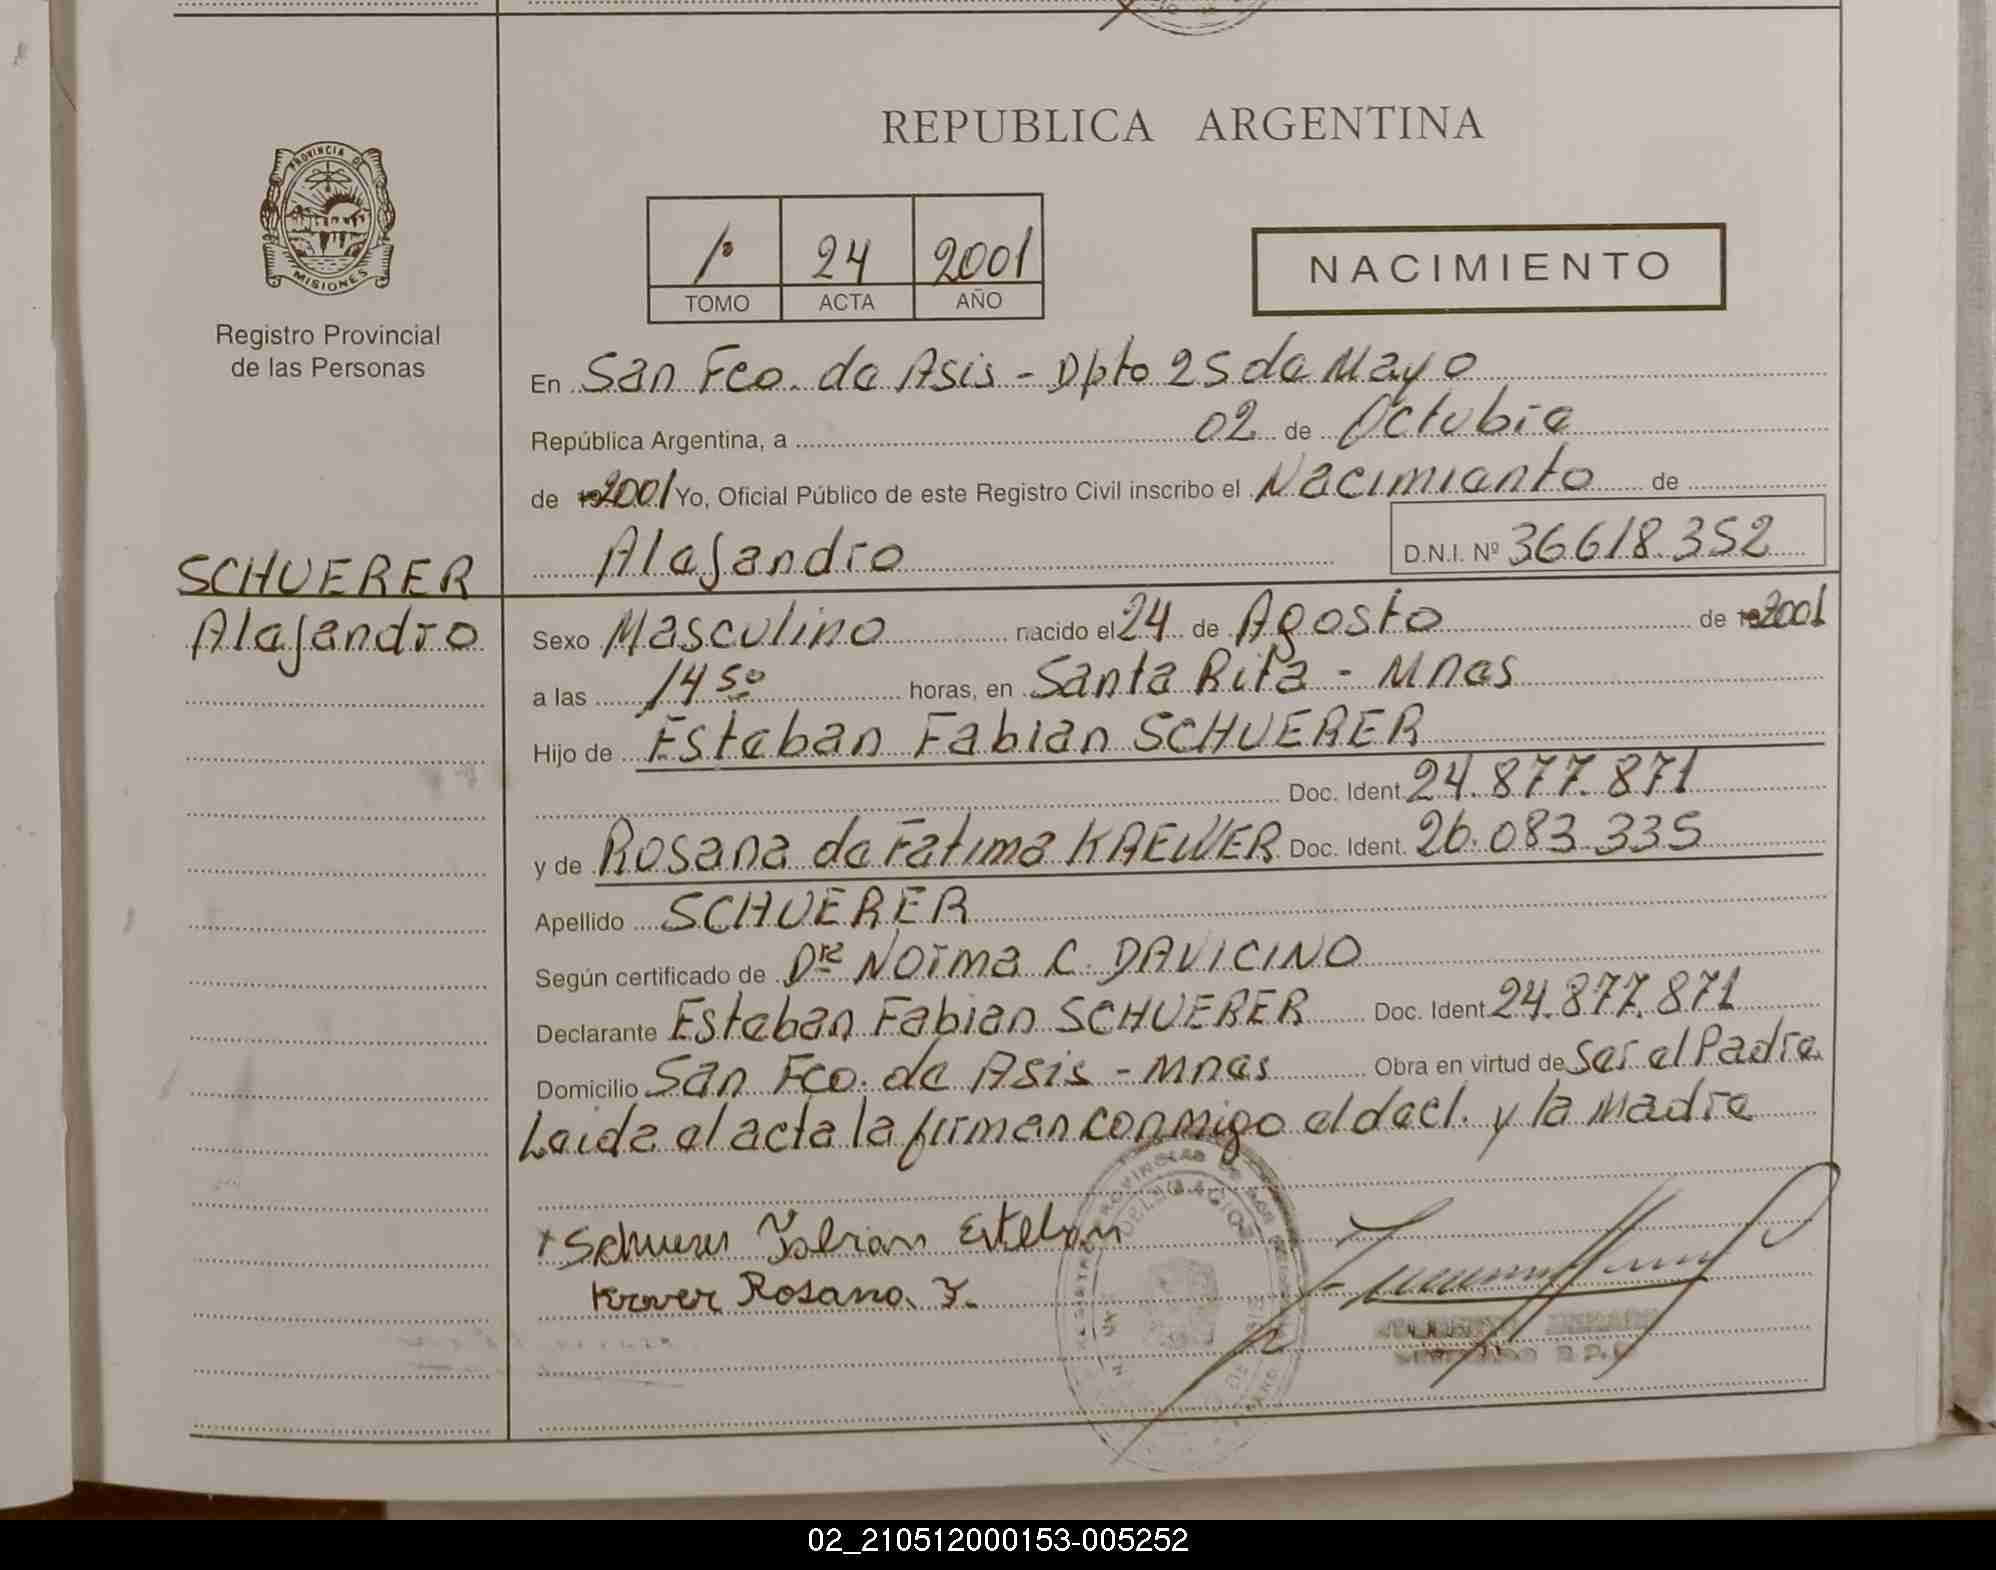 REPUBLICA ARGENTINA
PROVINCIA DE
MISIONES
Registro Provincial
de las Personas
1º 24 2001
TOMO ACTA AÑO
NACIMIENTO
En San Fco. de Asis - Dpto 25 de Mayo
República Argentina, a 02 de Octubre
de 2001 Yo, Oficial Público de este Registro Civil inscribo el Nacimiento de
Alejandro D.N.I. Nº 36.618.352
SCHUERER
Alejandro
Sexo Masculino nacido el 24 de Agosto de 2001
a las 14 50 horas, en Santa Rita - Mnes
Hijo de Esteban Fabian SCHUERER
Doc. Ident. 24.877.871
y de Rosana de Fatima KREWER Doc. Ident. 26.083.335
Apellido SCHUERER
Según certificado de Dra Norma C. DAVICINO
Declarante Esteban Fabian SCHUERER Doc. Ident. 24.877.871
Domicilio San Fco. de Asis - Mnes Obra en virtud de Ser el Padre
Leida el acta la firman conmigo el decl. y la Madre
Schuerer Fabian Esteban
Krever Rosana. F.
02_210512000153-005252